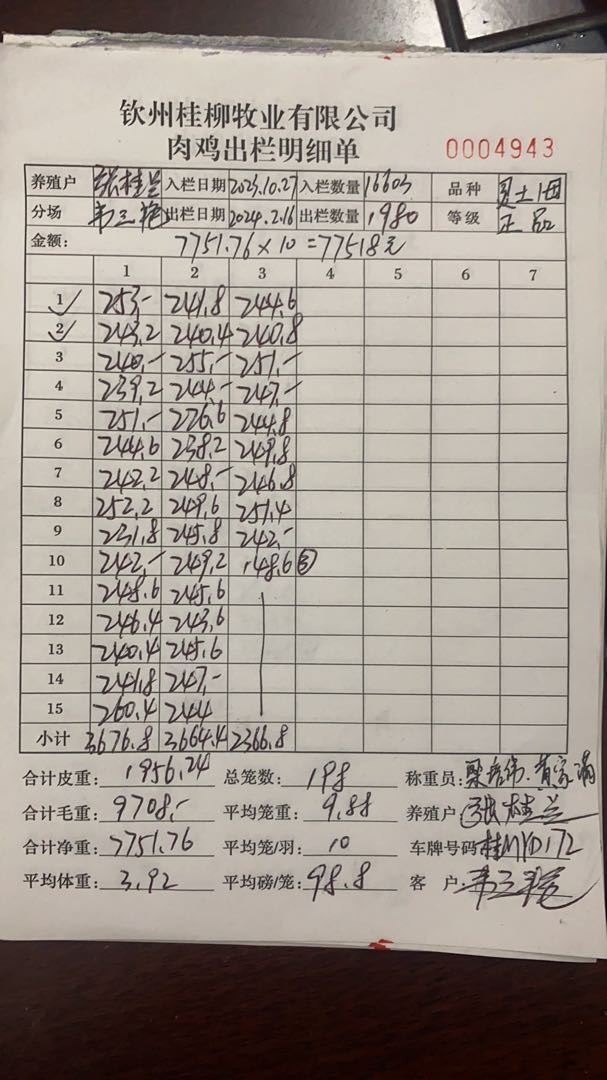 钦州桂柳牧业有限公司
肉鸡出栏明细单 0004943
养殖户 张桂兰 入栏日期 2023.10.27 入栏数量 16603 品种
分场 出栏日期 2024.2.16 出栏数量 1980 等级 正品
金额: 7751.76×10=77518元
1 2 3 4 5 6 7
1 253,- 241.8 244.6
2 243.2 240.4 240.8
3 240,- 255,- 251,-
4 239.2 244,- 247,-
5 251,- 226.6 244.8
6 244.6 238.2 249.8
7 242.2 248,- 246.8
8 252.2 249.6 251.4
9 231.8 245.8 242,-
10 242,- 249.2 148.6 ③
11 248.6 245.6
12 246.4 243.6
13 240.4 245.6
14 241.8 247,-
15 260.4 244
小计 3676.8 3664.4 2366.8
合计皮重: 1956.24 总笼数: 198 称重员:
合计毛重: 9708,- 平均笼重: 9.88 养殖户 张桂兰
合计净重: 7751.76 平均笼/羽: 10 车牌号码 桂MYD172
平均体重: 3.92 平均磅/笼: 98.8 客 户: